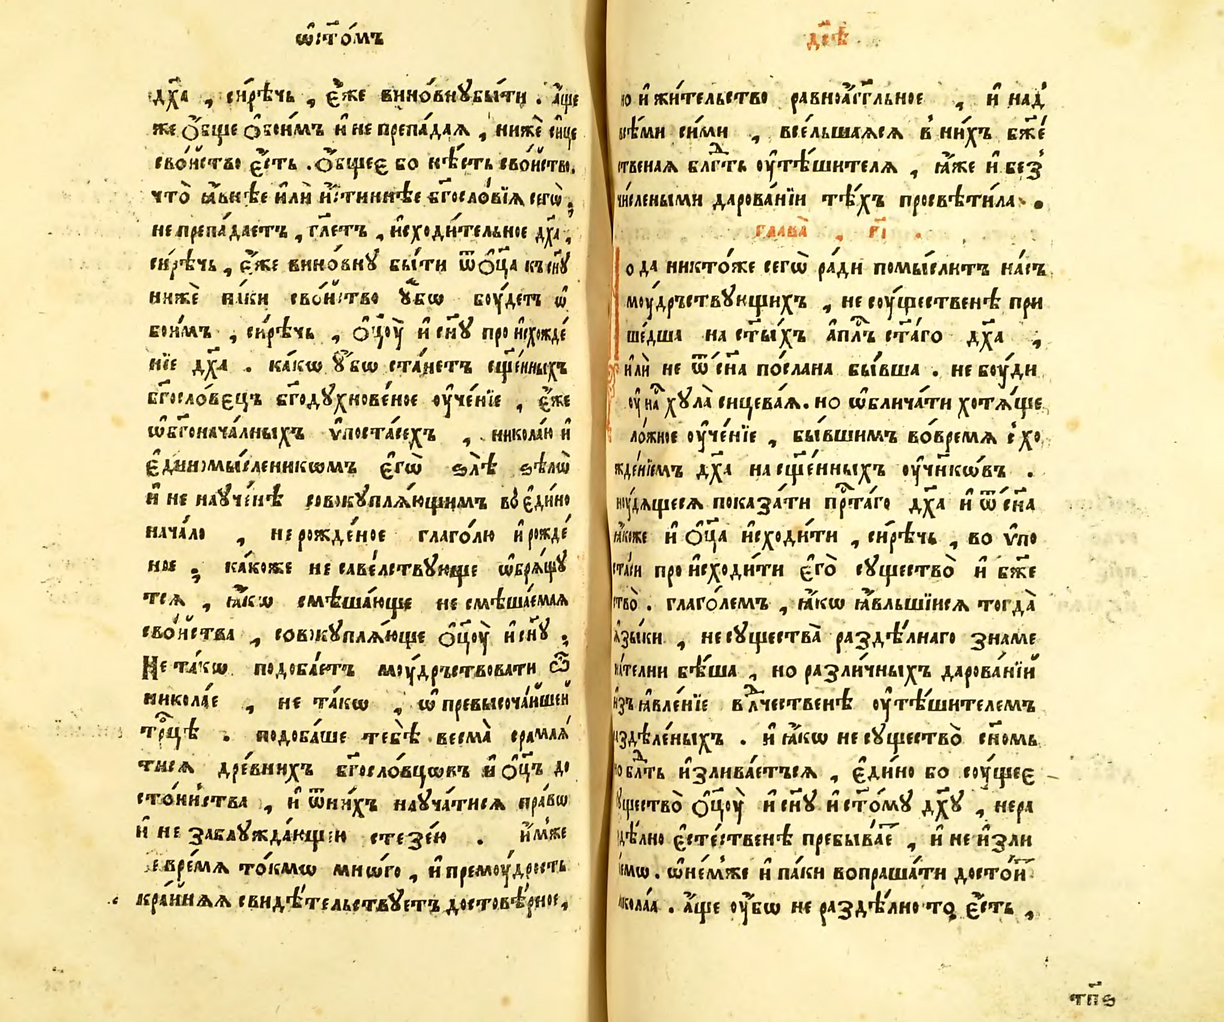 ѡ҆ст҃о́мъ
дх҃а , си́рѣчь , є҆́же вино́внꙋбы́ти . а҆́ще
же ѻ҆́бще ѻ҆бои́мъ и҆ не препа́дая , нижѐ сице
сво́йство є҆́сть . ѻ҆́бщеє бо нѣ́сть сво́йство,
что̀ ꙗ҆́внѣе и҆лѝ и҆́стиннѣе бг҃осло́вїя сегѡ̀ ;
не препа́даетъ , гл҃етъ , и҆сходи́тельное дх҃а ,
си́рѣчь , є҆́же вино́внꙋ бы́ти ѿ ѻ҆ц҃а къ сн҃ꙋ
нижѐ па́ки сво́йство ᲂу҆́бѡ боу́детъ ѡ҆
бои́мъ , си́рѣчь , ѻ҆ц҃оу̀ и҆ сн҃ꙋ про и҆схожде́
нїе дх҃а . ка́кѡ ᲂу҆́бѡ ста́нетъ сщ҃е́нныхъ
бг҃осло́вєцъ бг҃одꙋхнове́ное оу҆че́нїе , є҆́же
ѡ҆бг҃онача́лныхъ ѵ҆поста́сехъ , никола́ю и҆
є҆диномы́сленикѡмъ є҆гѡ̀ ѕлѣ̀ ѕѣлѡ̀
и҆ не науче́нѣ совокупля́ющимъ во є҆ди́но
нача́ло , не рожде́ное глаго́лю и҆ рожде́
ное ; ка́коже не саве́лствꙋюще ѡ҆бря́щꙋ
тся , ꙗ҆́кѡ смѣша́юще не смѣша́емая
сво́йства , совокꙋпля́юще ѻ҆ц҃оу̀ и҆ сн҃ꙋ ;
Не та́кѡ подоба́етъ моу́дръствовати ѽ
никола́е , не та́кѡ , ѡ҆ превысоча́йшей
трⷪ҇цѣ . подоба́ше тебѣ̀ весма̀ срамля́
тися дре́внихъ бг҃осло́вцѡвъ и҆ ѻ҆ц҃ъ до
сто́инства , и҆ ѿни́хъ науча́тися пра́вѡ
и҆ не забꙋжда́ющею стезе́ю . и҆́мже
не вре́мя то́кмѡ мнѡ́го , и҆ премоу́дрость
кра́йняя свидѣ́тельствꙋетъ достовѣ́рное,
дс҃ѣ
но и҆ жи́тельство равноа́гг҃льное , и҆ над̾
всѣ́ми си́ми , всельшаяся в̾ ни́хъ бж҃е́
ственая блг҃ть оу҆тѣ́шителя , ꙗ҆́же и҆ без̾
чи́слеными дарова́нїи тѣ́хъ просвѣти́ла .
глава̀ , г҃і .
о да никто́же сегѡ̀ ра́ди помы́слитъ на́съ
моу́дръствꙋющихъ , не соу́щественѣ при
ше́дша на ст҃ы́хъ а҆пл҃ъ ст҃а́го дх҃а ,
и҆лѝ не ѿ сн҃а по́слана бы́вша . не боу́ди
оу҆ на́съ хꙋла̀ сицева́я . но ѡ҆блича́ти хотя́ще
ло́жное оу҆че́нїе , бы́вшимъ вовре́мя схо
жде́нїемъ дх҃а на сщ҃е́нныхъ оу҆чн҃икѡ́въ .
ноу́дящеся показа́ти прⷭ҇та́го дх҃а и҆ ѿ сн҃а
ꙗ҆́коже и҆ ѻ҆ц҃а и҆сходи́ти , си́рѣчь , во ѵ҆по
ста́си про и҆сходи́ти є҆го̀ сꙋщество̀ и҆ бж҃е
ство̀ . глаго́лемъ , ꙗ҆́кѡ ꙗ҆́вльшїися тогда̀
ꙗ҆зы́ки , не сꙋщества̀ раздѣ́лнаго знаме
нателни бѣ́ша , но разли́чныхъ дарова́нїй
и҆зъ ꙗ҆вле́нїе влⷣчественѣ оу҆тѣ́шителемъ
раздѣ́леныхъ . и҆ ꙗ҆́кѡ не сꙋщество̀ сн҃омъ
но блг҃ть и҆злива́етъся , є҆ди́но бо соу́щеє
сꙋщество̀ ѻ҆ц҃оу̀ и҆ сн҃ꙋ и҆ ст҃о́мꙋ дх҃ꙋ , нера
здѣ́лно є҆сте́ственѣ пребыва́е , и҆ не и҆зли
ѧемѡ . ѡ҆не́мже и҆ па́ки вопраша́ти досто́и
никола́я . а҆́ще оу҆́бѡ не раздѣ́лно то̀ є҆́сть ,
тп҃ѕ